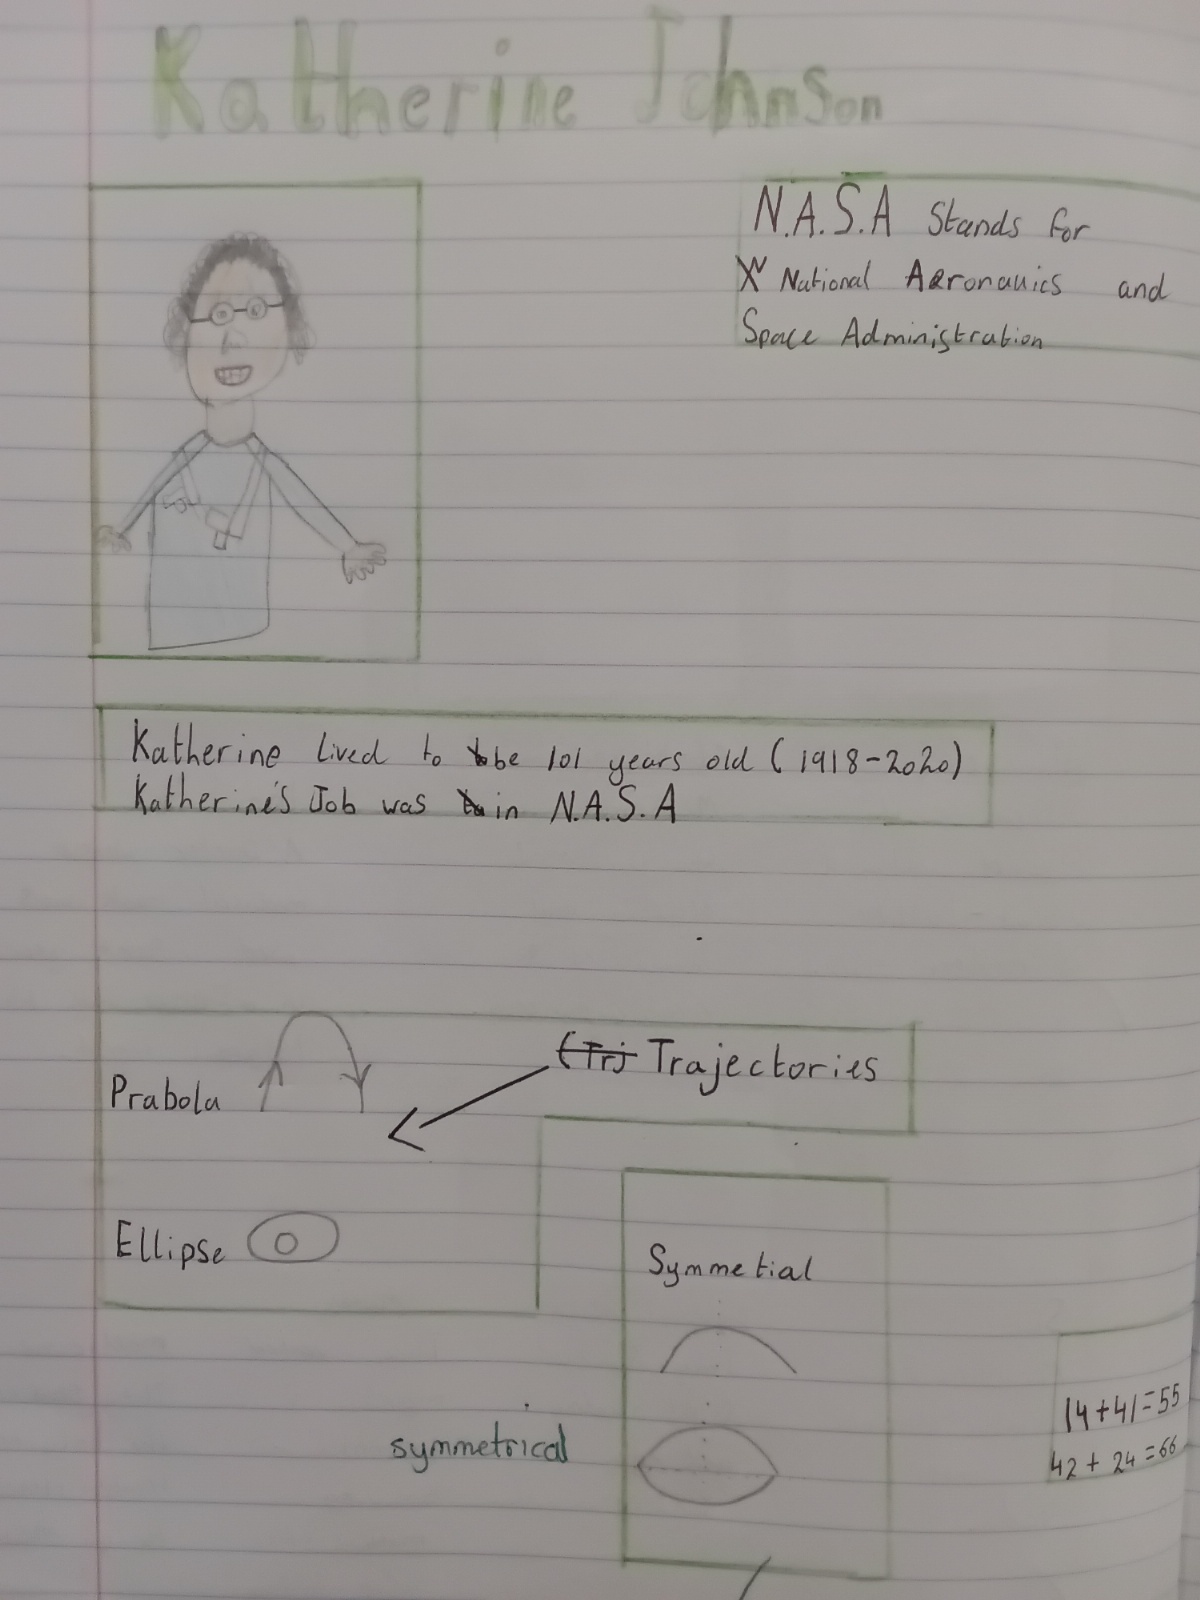 Katherine Johnson
N.A.S.A Stands for
National Aeronauics and
Space Administration
Katherine lived to be 101 years old (1918-2020)
Katherine's Job was in N.A.S.A
(Trj Trajectories
Prabola
Ellipse
Symmetial
symmetrical
14+41=55
42+24=66